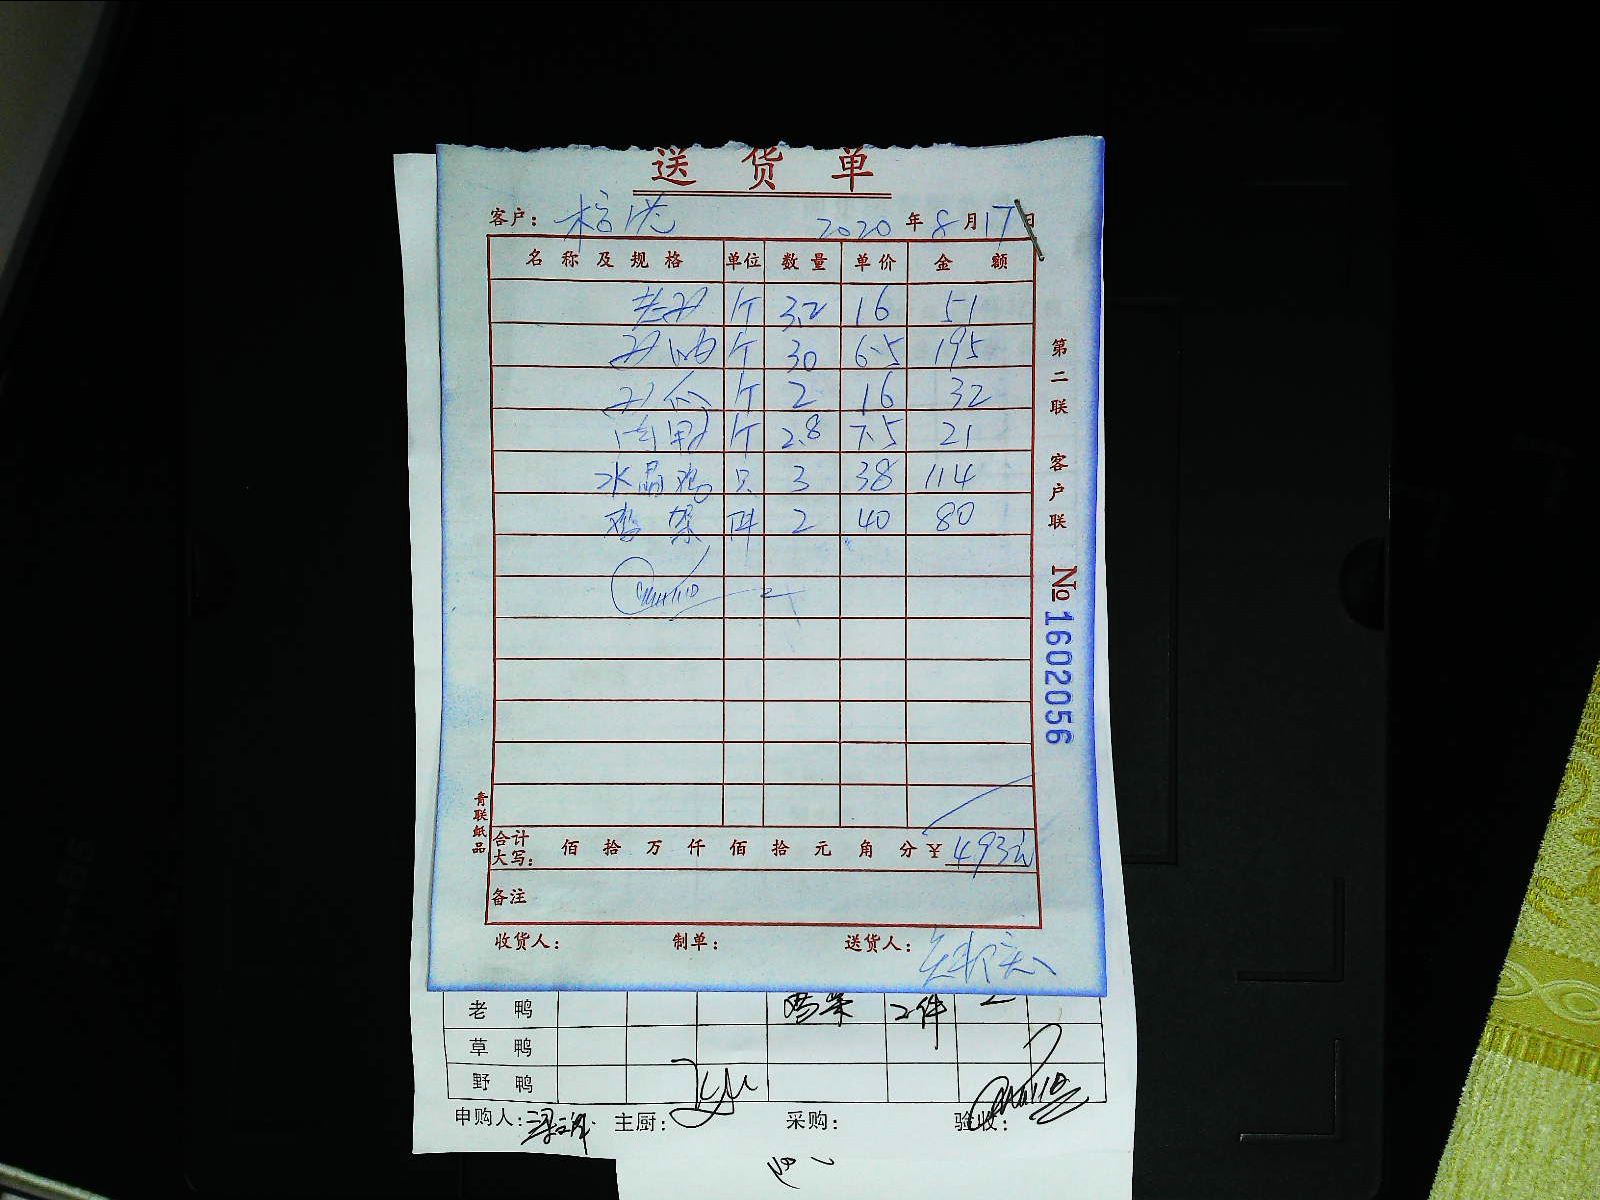 送 货 单
客户： 2020 年 8 月 17 日
名 称 及 规 格 单位 数 量 单 价 金 额
个 3.2 16 51
个 30 6.5 195
个 2 16 32
个 2.8 7.5 21
水晶鸡 只 3 38 114
鸡架 件 2 40 80
第二联 客户联
№ 1602056
青联纸品
合计大写： 佰 拾 万 仟 佰 拾 元 角 分 ¥ 493元
备注
收货人： 制单： 送货人：
老 鸭 鸡架 2件 2
草 鸭
野 鸭
申购人： 主厨： 采购： 验收：